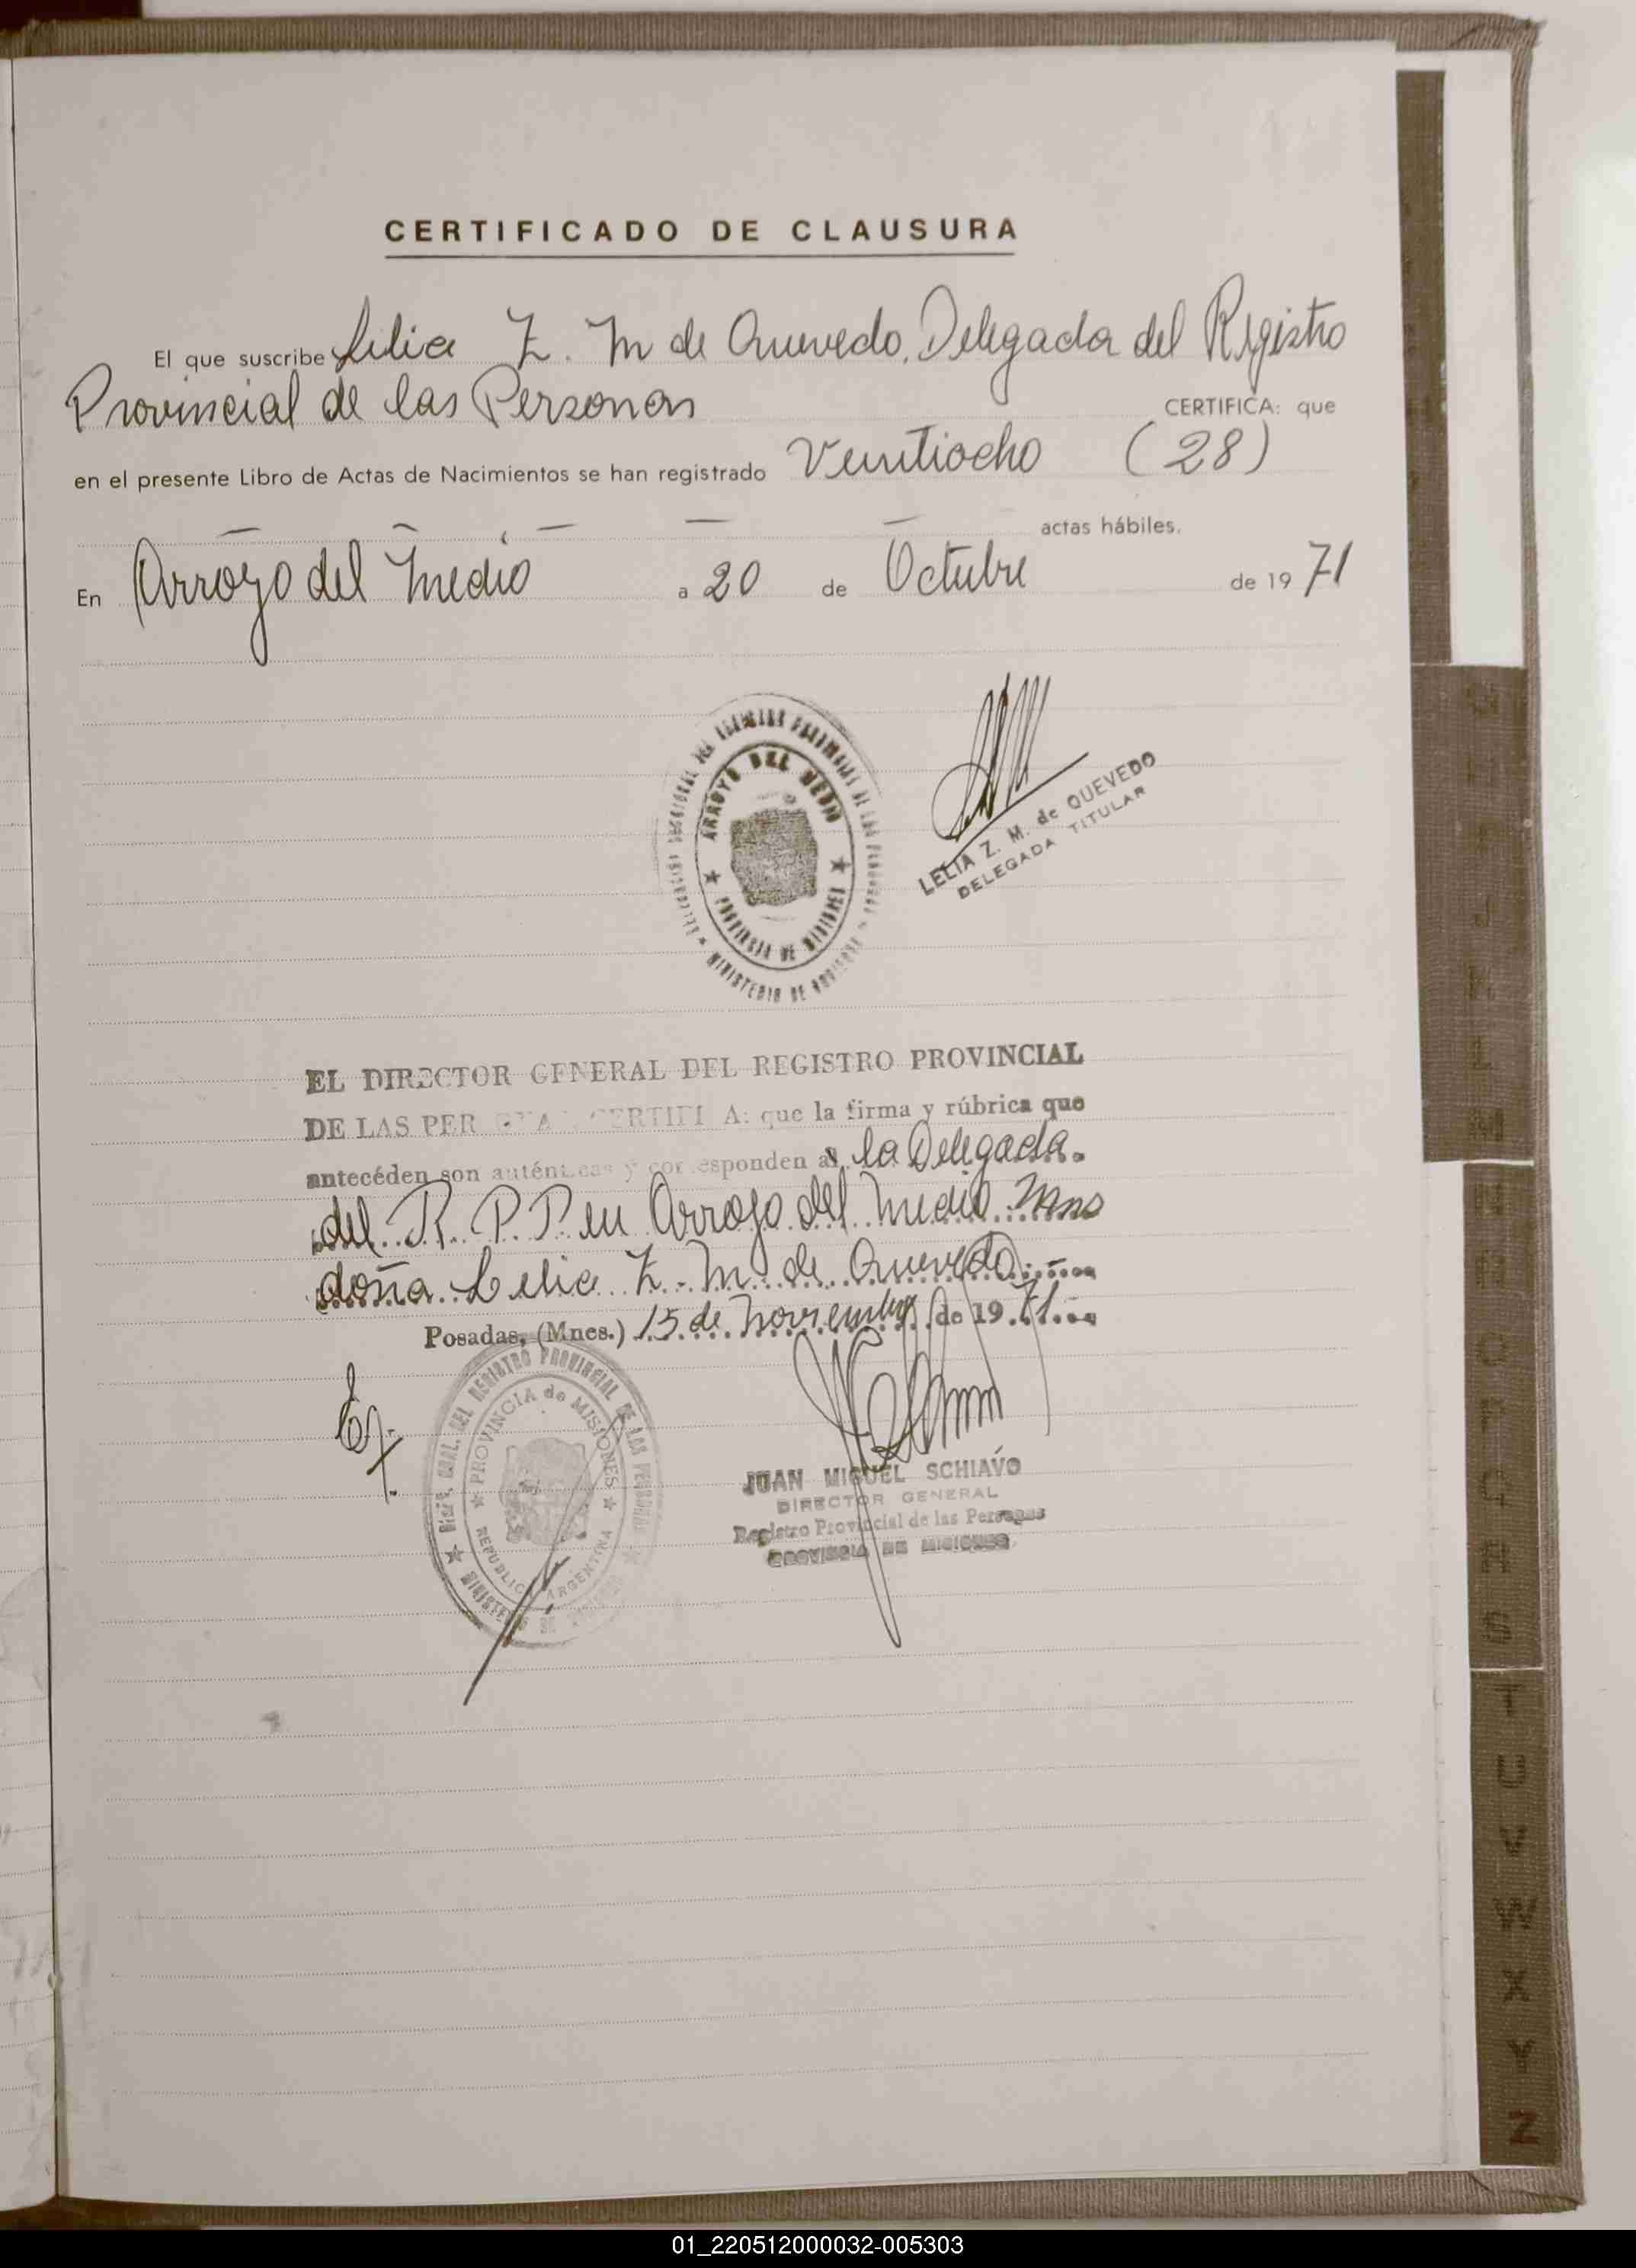 CERTIFICADO DE CLAUSURA
El que suscribe Lelia Z. M de Quevedo, Delegada del Registro
Provincial de las Personas CERTIFICA: que
en el presente Libro de Actas de Nacimientos se han registrado Veintiocho (28)
— — — — — actas hábiles.
En Arroyo del Medio a 20 de Octubre de 1971
ARROYO DEL MEDIO
PROVINCIA DE MISIONES
MINISTERIO DE
LELIA Z. M. de QUEVEDO
DELEGADA TITULAR
EL DIRECTOR GENERAL DEL REGISTRO PROVINCIAL
DE LAS PER CERTIFI A: que la firma y rúbrica que
antecéden son auténticas y corresponden a la Delegada.
del R. P. P en Arroyo del Medio Mns
doña Lelia Z. M de Quevedo
Posadas, (Mnes.) 15 de Noviembre de 1971
DEL REGISTRO PROVINCIAL DE LAS PERSONAS
PROVINCIA de MISIONES
REPUBLICA ARGENTINA
JUAN MIGUEL SCHIAVO
DIRECTOR GENERAL
Registro Provincial de las Personas
PROVINCIA DE MISIONES
T
U
V
W
X
Y
Z
01_220512000032-005303